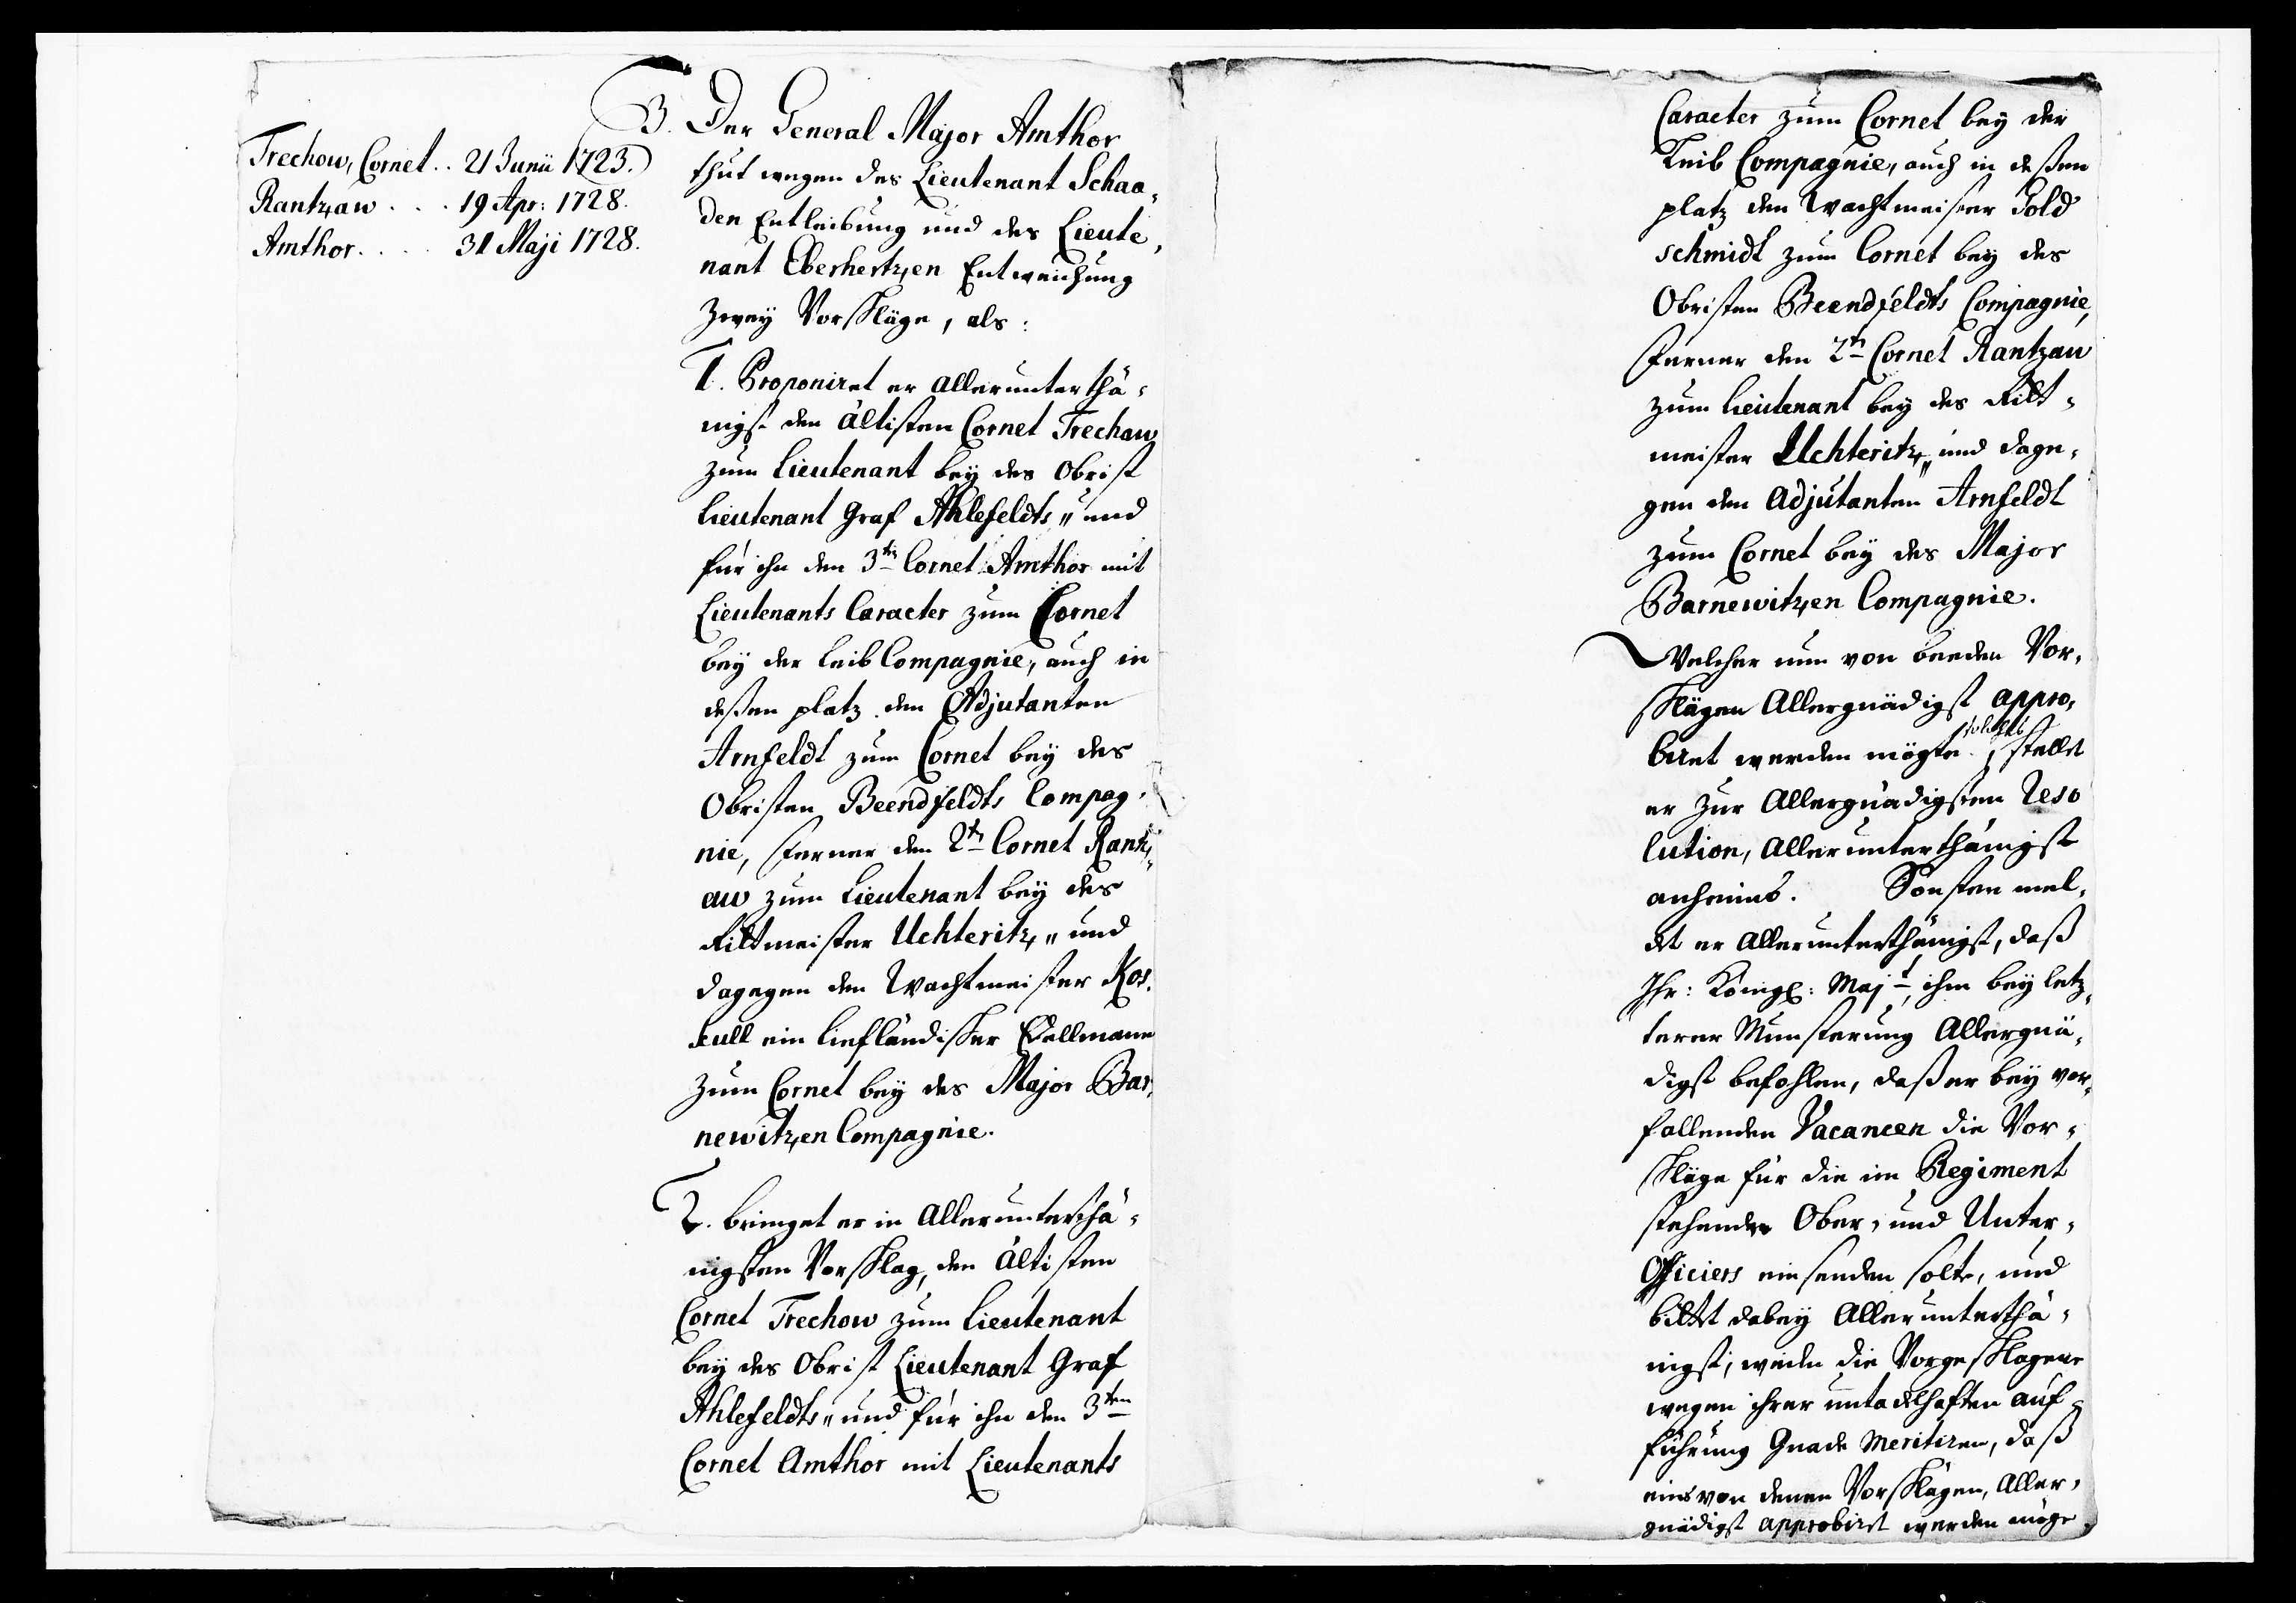 Trechow, Cornet.. 21 Junii 1723.
Rantzaw . . . 19 Apr: 1728.
Amthor. . . . 31 Maji 1728.
3. Der General Major Amthor
thut wegen des Lieutenant Schaa-
den Entleibung und des Lieute-
nant Eberhertzen Entweichung
Zwey Vorschläge, als:
1. Proponiret er allerunterthä-
nigst den ältisten Cornet Trechaw
zum Lieutenant bey des Obrist
Lieutenant Graf Ahlefeldts„ und
für ihn den 3ten Cornet Amthor mit
Lieutenants Caracter zum Cornet
bey der Leib Compagnie, auch in
deßen platz den Adjutanten
Arnfeldt zum Cornet bey des
Obristen Beendfeldts Compag-
nie, ferner den 2ten Cornet Rantz-
aw zum Lieutenant bey des
Rittmeister Uchteritz„ und
dagegen den Wachtmeister Kos-
kull ein Liefländischer Edellmann
zum Cornet bey des Major Bar-
newitzen Compagnie.
2. bringet er in Allerunterthä-
nigsten Vorschlag, den ältisten
Cornet Trechow zum Lieutenant
bey des Obrist Lieutenant Graf
Ahlefeldts„ und für ihn den 3ten
Cornet Amthor mit Lieutenants
Caracter zum Cornet bey der
Leib Compagnie, auch in deßen
platz den Wachtmeister Gold
schmidt zum Cornet bey des
Obristen Beendfeldts Compagnie,
ferner den 2ten Cornet Rantzau
zum Lieutenant bey des Ritt-
meister Uchteritz„ und dage-
gen den Adjutanten Arnfeldt
zum Cornet bey des Major
Barnewitzen Compagnie.
Welcher nun von beeden Vor-
schlägen Allergnädigst appro-
biret werden mögte, solches stellet
er zur Allergnädigsten Reso
lution, Allerunterthänigst
anheimb. Sonsten mel-
det er Allerunterthänigst, daß
Ihr: Königl: Majt, ihm bey letz-
terer Munsterung Allergnä-
digst befohlen, daß er bey vor-
fallenden Vacancen die Vor-
schläge für die im Regiment
stehende Ober- und Unter-
Officiers einsenden solte, und
bittet dabey Allerunterthä-
nigst, weilen die Vorgeschlagene
wegen ihrer untadelhaften auf-
führung Gnade meritiren, daß
eins von denen Vorschlägen, Aller-
gnädigst approbiret werden möge.